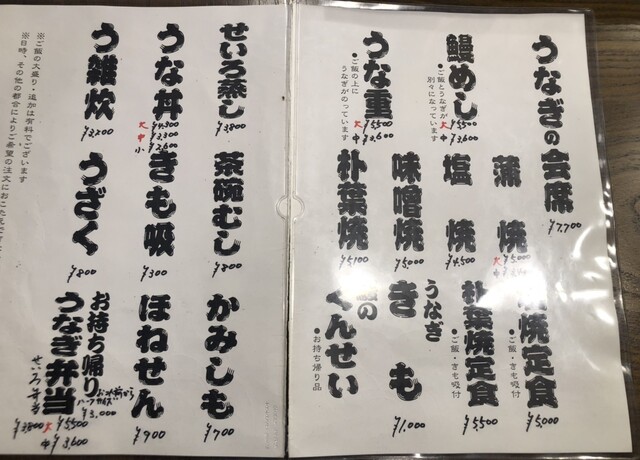 うなぎの会席
¥7,700
鰻めし
・ご飯とうなぎが
別々になっています
大 ¥5,500
中 ¥3,600
うな重
・ご飯の上に
うなぎがのっています
大 ¥5,500
中 ¥3,600
蒲焼
大 ¥5,000
中
塩焼
¥4,500
味噌焼
¥5,000
朴葉焼
¥5,100
焼定食
・ご飯・きも吸付
¥5,000
朴葉焼定食
・ご飯・きも吸付
¥5,500
うなぎ
きも
¥1,000
のくんせい
・お持ち帰り品
せいろ蒸し
¥3,800
うな丼
大 ¥4,300
中 ¥3,300
小 ¥2,600
う雑炊
¥2,200
茶碗むし
¥800
きも吸
¥300
うざく
¥800
かみしも
¥700
ほねせん
¥700
お持ち帰り
うなぎ弁当
ハーフサイズ
¥3,000
大 ¥5,500
中 ¥3,600
せいろ弁当
¥3800
※ご飯の大盛り・追加は有料でございます
※日時、その他の都合によりご希望の注文におこたえでき